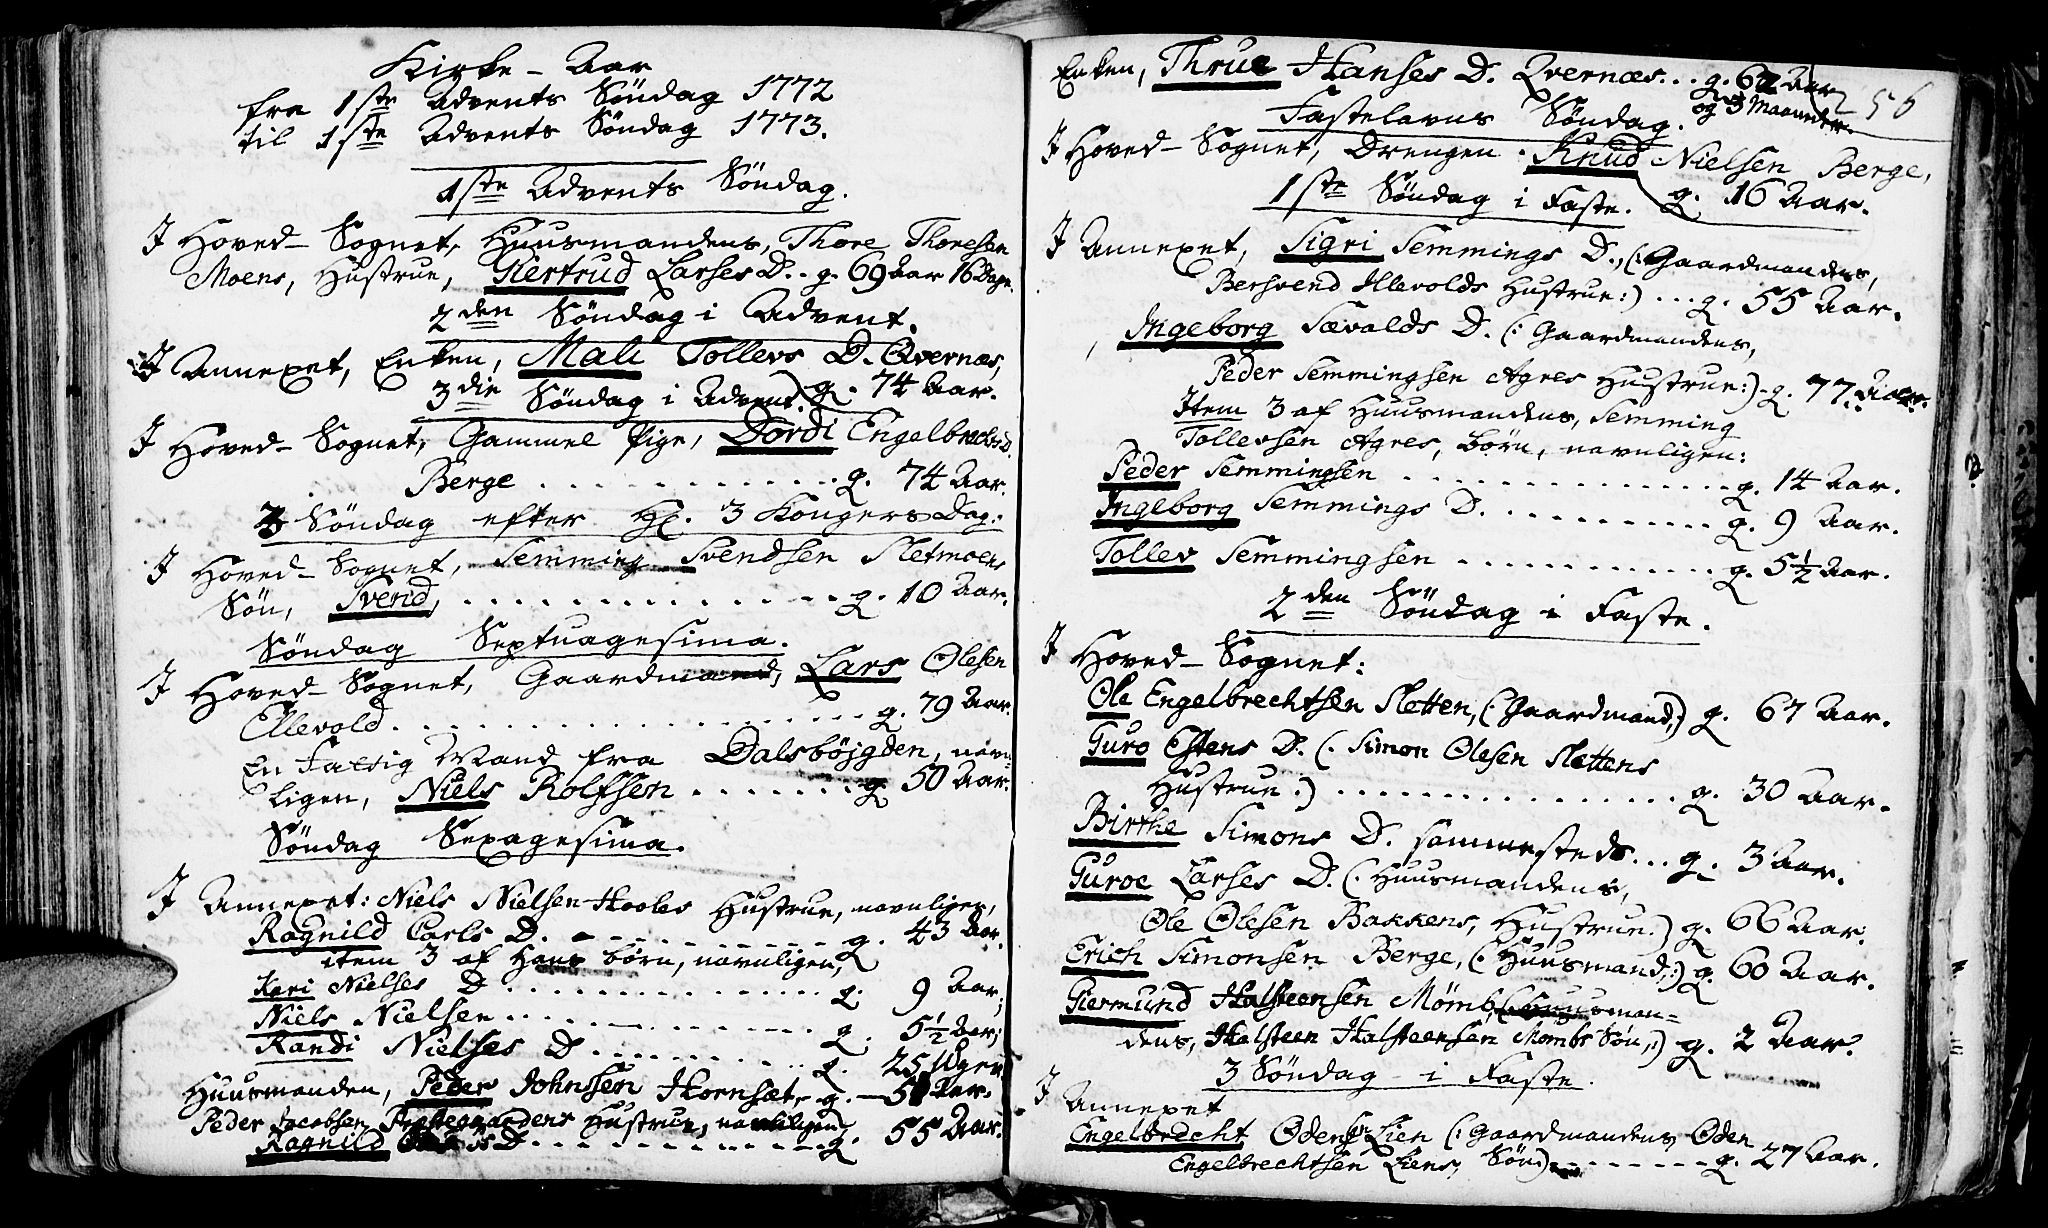 Kirke-Aar
fra 1ste Advents Søndag 1772
til 1ste Advents Søndag 1773.
1ste Advents Søndag.
I Hoved-Sognet, Huusmandens, Thore Thoresen
Moens, Hustrue, Giertrud Larses D. . g. 69 Aar 16 Dage.
2den Søndag i Advent.
I Annexet, Enken, Mali Tollevs D. Qvernæs,
g. 74 Aar.
3die Søndag i Advent.
I Hoved-Sognet, Gammel Pige, Dordi Engelbrechts D.
Berge . . . . . . . . . . . . g. 74 Aar.
3 Søndag efter Hl. 3 Kongers Dag.
I Hoved-Sognet, Semming Svendsen Sletmoens
Søn, Svend, . . . . . . . . . . . . g. 10 Aar.
Søndag Septuagesima.
I Hoved-Sognet, Gaardmand, Lars Olesen
Ellevold . . . . . . . . . . . . . . g. 79 Aar.
En Mand fra Dalsbøjgden, navn-
ligen, Niels Rolfsen . . . . . . . g. 50 Aar.
Søndag Sexagesima.
I Annexet: Niels Nielsen Hooles Hustrue, navnligen,
Ragnild Carls D. . . . . . . . . . . g. 43 Aar.
item 3 af Hans børn, navnligen,
Kari Nielses D . . . . . . . . . . . g. 9 Aar;
Niels Nielsen . . . . . . . . . . . . g. 5½ Aar;
Randi Nielses D . . . . . . . . . . g. 25 Uger.
Huusmanden, Peder Johnssen Hornsæt, g. Aar.
Peder Jacobsen Præstegaardens Hustrue, navnligen
Ragnild D . . . . . . . . . . g. 55 Aar.
Enken, Thrue Hanses D. Qvernæs . . . g. 62 Aar
og 3 Maaneder.
56
Fastelavns Søndag.
I Hoved-Sognet, Drengen Knud Nielsen Berge,
g. 16 Aar.
1ste Søndag i Faste.
I Annexet, Sigri Semmings D., (: Gaardmandens,
Bersvend Illevolds Hustrue:) . . . g. 55 Aar.
Ingeborg Sævalds D. (: Gaardmandens,
Peder Semmingsen Agres Hustrue:) . g. 77 Aar.
Item 3 af Huusmandens, Semming
Tollevsen Agres, børn, navnligen:
Peder Semmingsen . . . . . . . . . . . . g. 14 Aar.
Ingeborg Semmings D. . . . . . . . . . . g. 9 Aar.
Tollev Semmingsen . . . . . . . . . . . . g. 5½ Aar.
2den Søndag i Faste.
I Hoved-Sognet:
Ole Engelbrechtsen Sletten, (: Gaardmand,) g. 67 Aar.
Guro Estens D. (: Simon Olesen Slettens
Hustrue:) . . . . . . . . . . . . . . . . g. 30 Aar.
Birthe Simons D. sammesteds . . . g. 3 Aar.
Guroe Larses D. (: Huusmandens,
Ole Olesen Bakkens, Hustrue:) g. 66 Aar.
Erich Simonsen Berge, (: Huusmand,:) g. 60 Aar.
Giermund Halsteensen Mømb, (: Huusman-
dens, Halsteen Halsteensen Mombs Søn,:) g. 2 Aar.
3 Søndag i Faste.
I Annexet
Engelbrecht Odensen Lien (: Gaardmandens Oden
Engelbrechtsen Liens, Søn:) . . . . . . . g. 27 Aar.